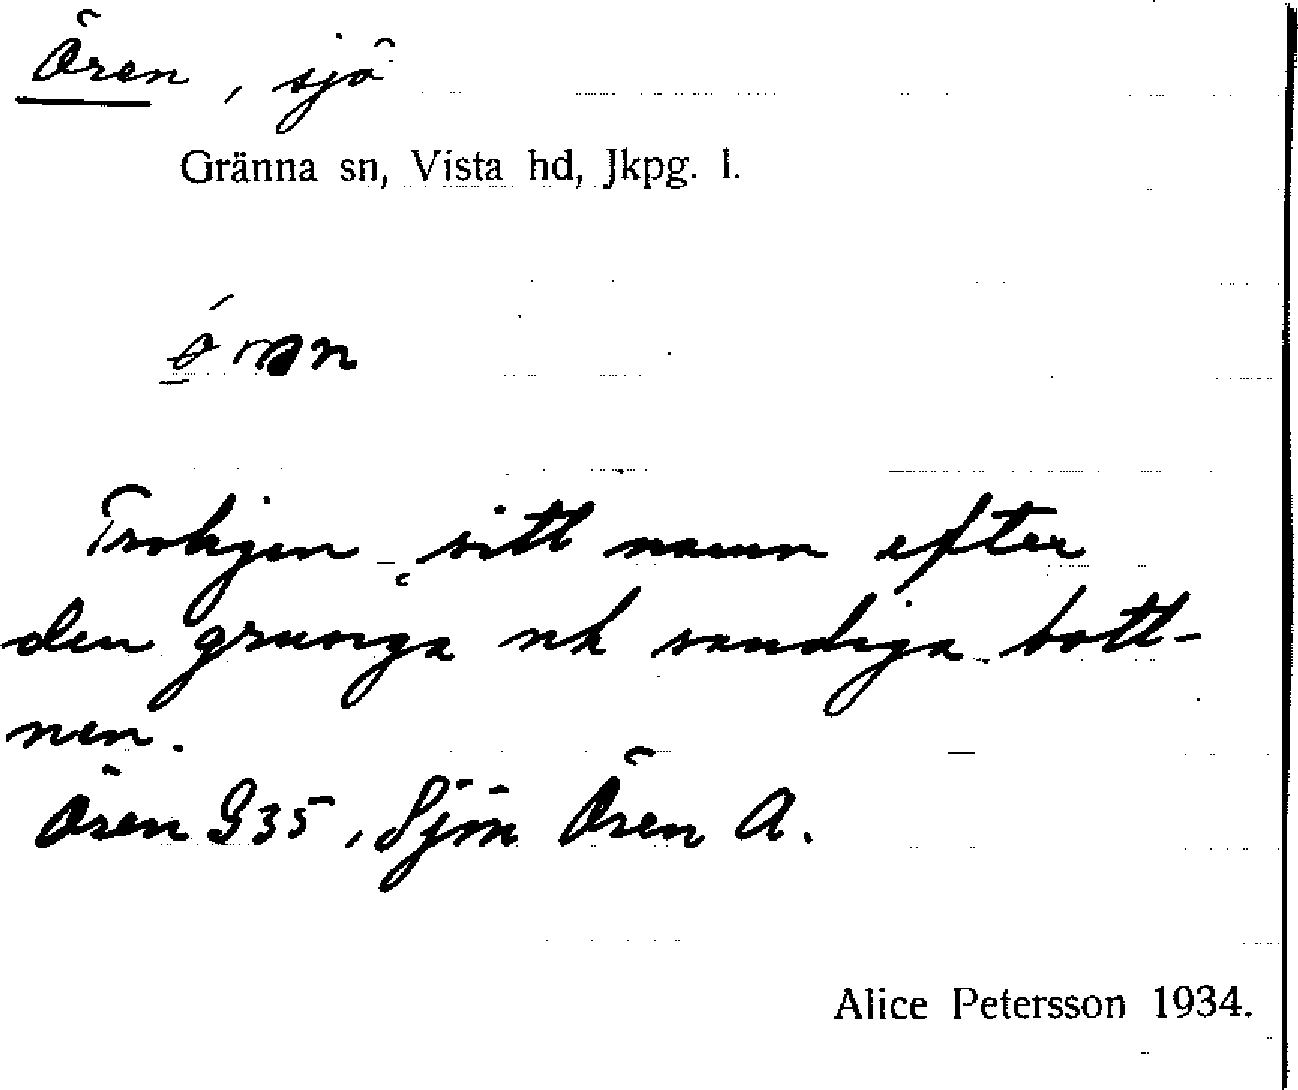 Ören, sjö
Gränna sn, Vista hd, Jkpg. l.
Troligen sitt namn efter
den grunga och sandiga bott-
nen.
Ören G35, Sjön Ören A.
Alice Petersson 1934.